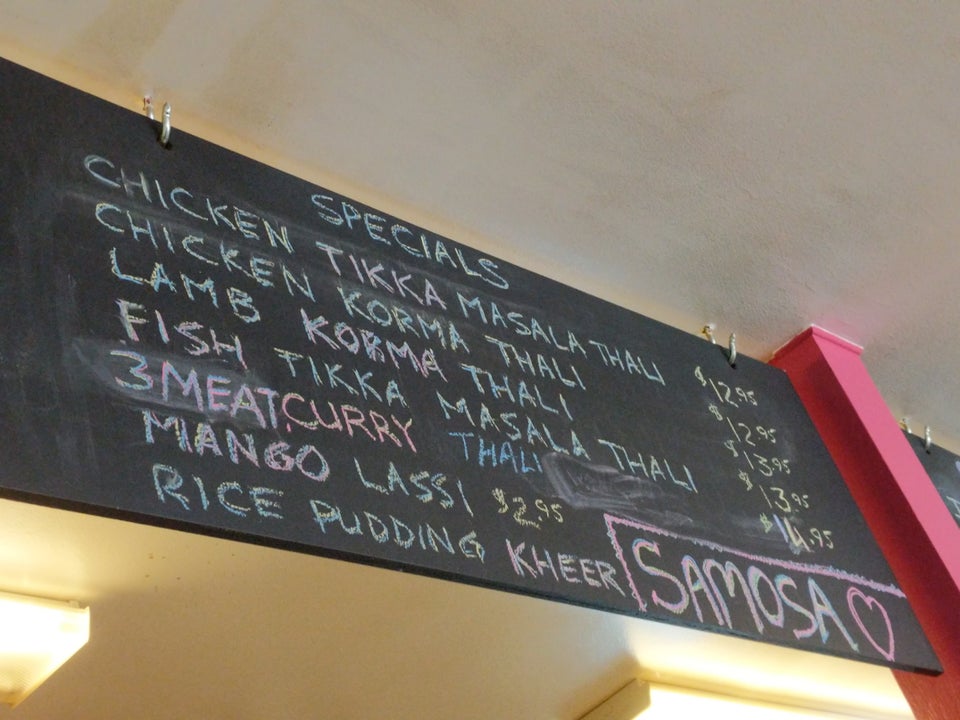 SPECIALS
CHICKEN TIKKA MASALA THALI $12.95
CHICKEN KORMA THALI $12.95
LAMB KORMA THALI $13.95
FISH TIKKA MASALA THALI $13.95
3 MEAT CURRY THALI $14.95
MANGO LASSI $2.95
RICE PUDDING KHEER
SAMOSA